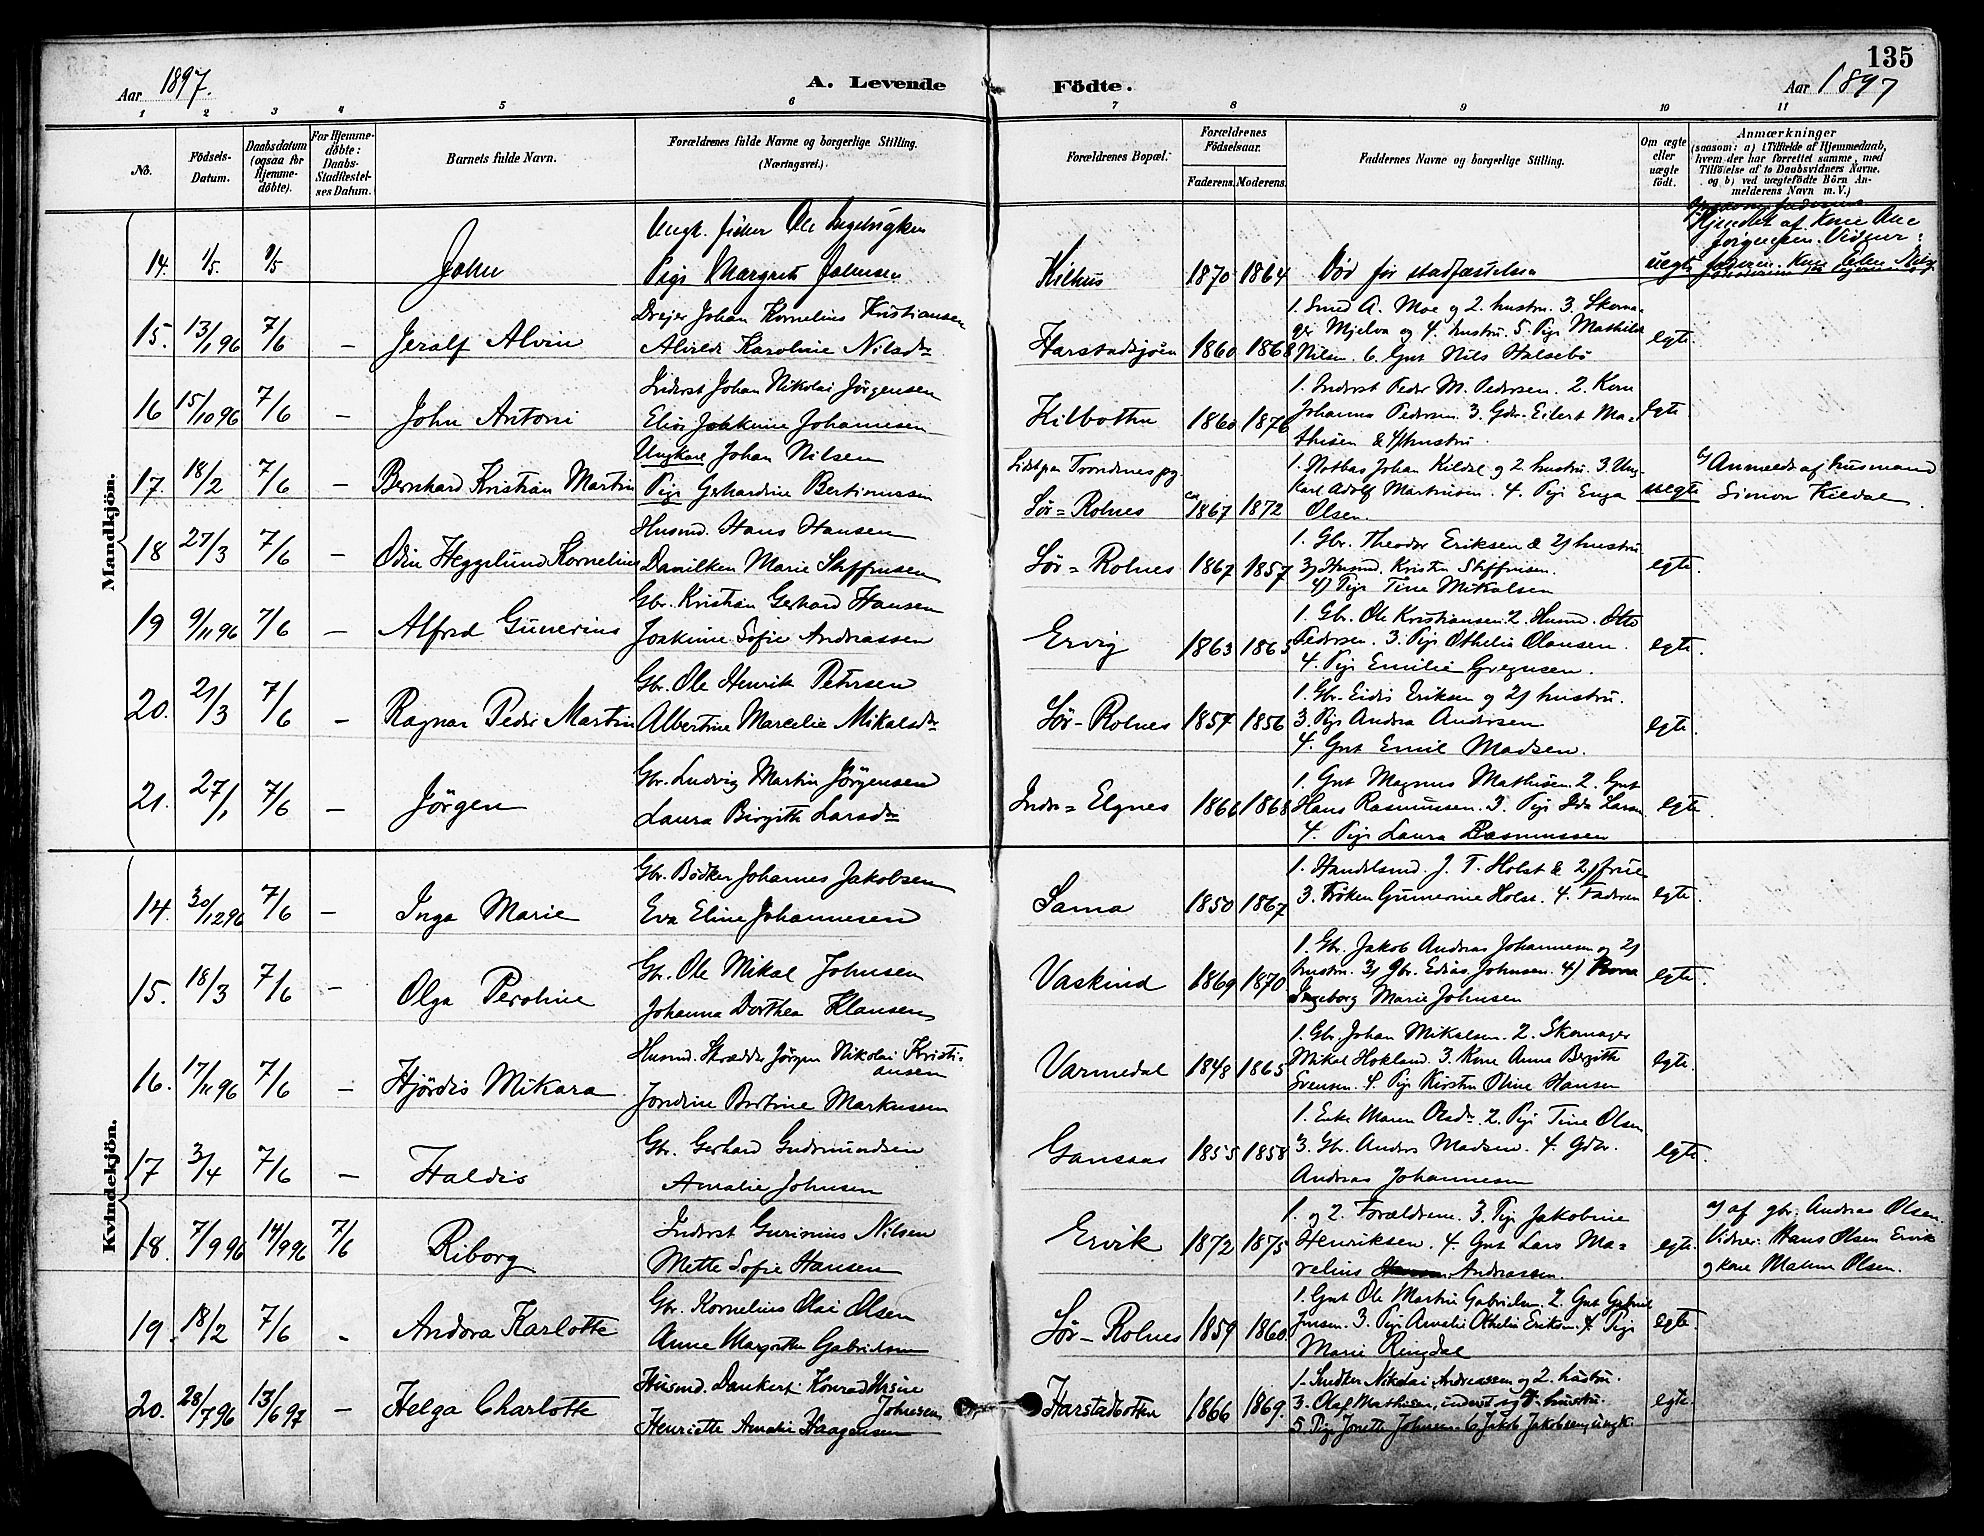 135
Aar 1897.
A. Levende Födte.
Aar 1897
1 2 3 4 5 6 7 8 9 10 11
No.
Födsels-Datum.
Daabsdatum (ogsaa for Hjemme-döbte).
For Hjemme-döbte: Daabs-Stadfæstel-ses Datum.
Barnets fulde Navn.
Forældrenes fulde Navne og borgerlige Stilling. (Næringsvei.)
Forældrenes Bopæl.
Forældrenes Födselsaar.
Faderens. Moderens.
Faddernes Navne og borgerlige Stilling.
Om ægte eller uægte födt.
Anmærkninger
(saasom: a) i Tilfælde af Hjemmedaab, hvem der har forrettet samme, med Tilföielse af to Daabsvidners Navne, og b) ved uægtefödte Börn Anmelderens Navn m. V.)
Mandkjön.
14. 1/5. 9/5 John
Ungk. fisker Ole
Pige Margrete Johnsen
Kilhus 1870 1864 Död før stadfæstelsen uegte
15. 13/1 96 7/6 – Jeralf Alvin
Drejer Johan Kornelius Kristiansen
Alvilde Karoline Nilsdr
Harstadsjöen 1860 1868
1. Smed A. Moe og 2. hustru. 3. Skomager Mjelva og 4. hustru. 5. Pige Mathilde Nilsen. 6. Gmt Nils Halsebö
egte.
16 15/10 96 7/6 – John Antoni
Inderst Johan Nikolai Jörgensen
Elise Joakime Johannesen
Kilbotten 1860 1876
1. Inderst Peder M. Pedersen. 2. Kone Johanna Pedersen. 3. Gdr. Eilert Mathisen & 4/ hustru.
egte
17. 18/2 7/6 – Bernhard Kristian Martin
Ungkarl Johan Nilsen
Pige Gerhardine Bertinussen
Trondenes pg
Sör-Rolnes ca 1867 1872
1. Notbas Johan Kildal og 2. hustru. 3. Ungkarl Adolf Martinsen. 4. Pige Enga Olsen.
uegte
b/ Anmeldt af husmand Simon Kildal.
18 27/3 7/6 – Odin Heggelund Kornelius
Husmd. Hans Hansen
Danilken Marie Steffensen
Sör-Rolnes 1867 1857
1. Gbr. Theodor Eriksen & 2/ hustru 3/ Husmd. Kristen Steffensen. 4/ Pige Tine Mikalsen
egte.
19 9/11 96 7/6 – Alfred Gunerius
Gbr. Kristian Gerhard Hansen
Joakime Sofie Andreassen
Ervig 1863 1865
1. Gbr. Ole Kristiansen 2. Husmd. Otto Pedersen. 3. Pige Othelia Olausen. 4. Pige Emilie Gregusen.
egte.
20. 21/3 7/6 – Ragnar Peder Martin
Gbr. Ole Henrik Petersen
Albertine Marcelie Mikalsdr
Sör-Rolnes 1857 1856
1. Gbr. Eidis Eriksen og 2/ hustru. 3. Pige Andrea Andersen 4. Gmt Emil Madsen.
egte.
21. 27/1 7/6 – Jörgen
Gbr. Ludvig Martin Jörgensen
Laura Birgitte Larsdr
Indre-Elgnes 1866 1868
1. Gmt Magnus Mathisen 2. Gmt Hans Rasmussen. 3. Pige Ida Larsen 4. Pige Laura Rasmussen
egte.
Kvindekjön.
14. 30/12 96 7/6 – Inga Marie
Gbr. Bödker Johannes Jakobsen
Eva Eline Johannesen
Sama 1850 1867
1. Handelsmd. J. T. Holst & 2/ frue 3. Fröken Gunerine Holst. 4. Faderen
egte.
15. 18/3 7/6 – Olga Peroline
Gbr. Ole Mikal Johnsen
Johanna Dorthea Klausen
Vaskind 1869 1870
1. Gbr. Jakob Andreas Johannesen og 2/ hustru. 3/ Gbr. Edias Johnsen. 4/ Kone Ingeborg Marie Johnsen
egte.
16. 17/11 96 7/6 – Hjördis Mikara
Husmd. Skrædder Jörgen Nikolai Kristiansen
Jondine Bertine Markussen
Varmedal 1848 1865
1. Gbr. Johan Mikalsen. 2. Skomager Mikal Hokland. 3. Kone Anna Bergitte Svensen. 4. Pige Kirsten Oline Hansen
egte.
17 3/4 7/6 – Haldis
Gbr. Gerhard Gudmundsen
Amalie Johnsen
Gansaas 1855 1858
1. Enke Maren Olsdr. 2. Pige Tine Olsen 3. Gbr. Anders Madsen. 4. Gdbr. Andreas Johannesen
egte.
18. 7/9 96 14/9 96 7/6 Riborg
Inderst Gurinius Nilsen
Mette Sofie Hansen
Ervik 1872 1875
1. og 2. Forældrene. 3. Pige Jakobine Henriksen. 4. Gmt Lars Marelius Andreassen.
egte.
a/ af gbr. Andreas Olsen. Vidner: Hans Olsen Ervik og kone Malene Olsen.
19. 18/2 7/6 – Andora Karlotte
Gbr. Kornelius Olai Olsen
Anne Margrethe Gabrielsen
Sör-Rolnes 1859 1860.
1. Gmt Ole Martin Gabrielsen. 2. Gmt Gabriel Jensen. 3. Pige Amalie Othelie Eriksen. 4. Pige Marie Ringdal
egte.
20. 28/7 96 13/6 97 – Helga Charlotte
Husmd. Dankert Konrad Ursin Johnsen
Henriette Amalie Haagensen
Harstadbotten 1866 1869.
1. Snedker Nikolai Andreassen og 2. hustru. 3. Olaf Mathisen, inderst og 4. hustru. 5. Pige Jonette Johnsen. 6 Jakob Jakobsen, ungk.
egte.